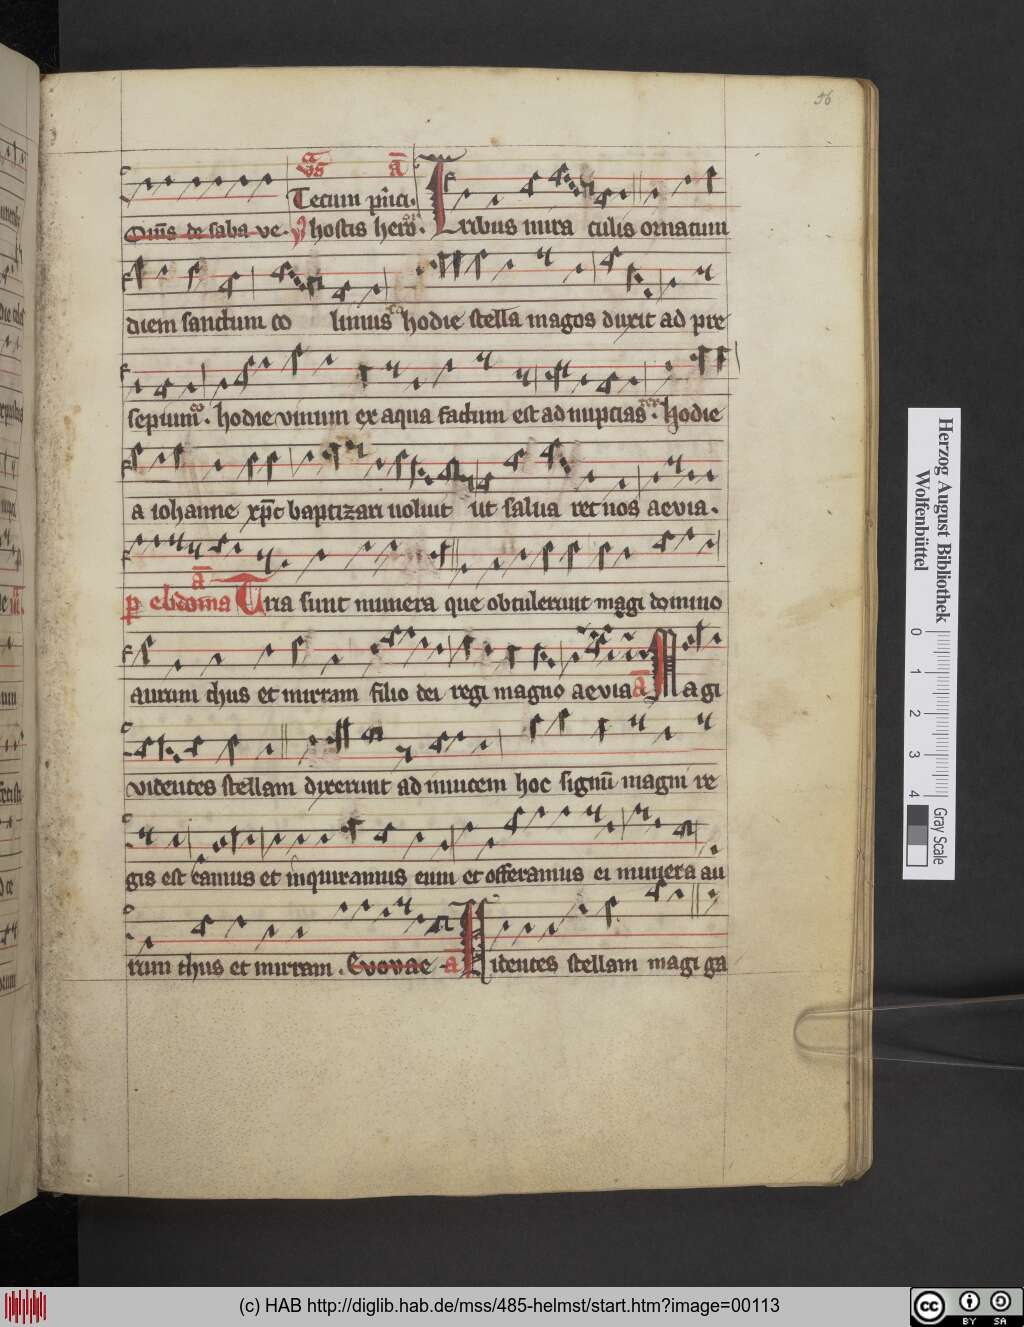 56
Ss a
Tecum p̄nci.
Om̄s de saba ve. V hostis hero. Tribus mira culis ornatum
diem sanctum co limus hodie stella magos duxit ad pre
sepium. hodie vinum ex aqua factum est ad nuptias. hodie
a iohanne xp̄c baptizari uoluit ut salua ret nos aevia.
a
p ebdoma Tria sunt munera que obtulerunt magi domino
aurum thus et mirram filio dei regi magno aevia a Magi
videntes stellam dixerunt ad inuicem hoc signū magni re
gis est eamus et inquiramus eum et offeramus ei munera au
rum thus et mirram. Evovae a Uidentes stellam magi ga
Herzog August Bibliothek
Wolfenbüttel
0 1 2 3 4
Gray Scale
(c) HAB http://diglib.hab.de/mss/485-helmst/start.htm?image=00113
cc BY SA